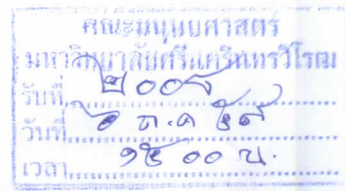 คณะมนุษยศาสตร์
มหาวิทยาลัยศรีนครินทรวิโรฒ
ที่ ๒๐๐๘
วันที่ ๑ ธ.ค ๕๙
เวลา ๑๕ ๐๐ น.